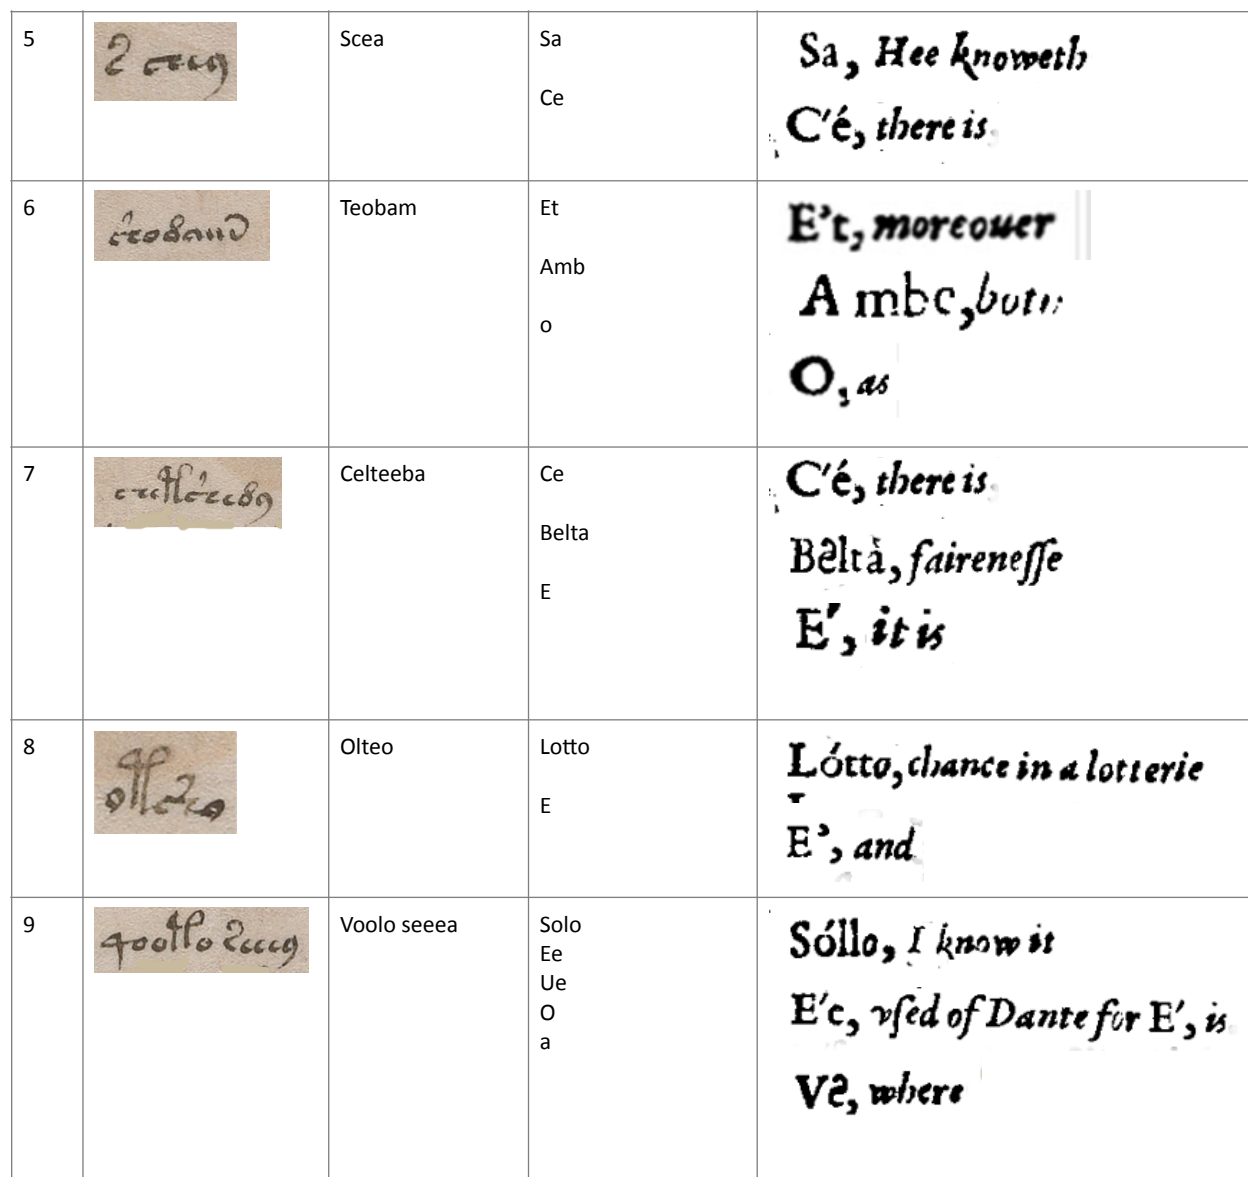 5
Scea
Sa
Ce
Sa, Hee knoweth
C'é, there is
6
Teobam
Et
Amb
o
E't, moreouer
Ambe, both
O, as
7
Celteeba
Ce
Belta
E
C'é, there is
Beltà, faireneſſe
E', it is
8
Olteo
Lotto
E
Lótto, chance in a lotterie
E', and
9
Voolo seeea
Solo
Ee
Ue
O
a
Sóllo, I know it
E'e, vſed of Dante for E', is
Ve, where